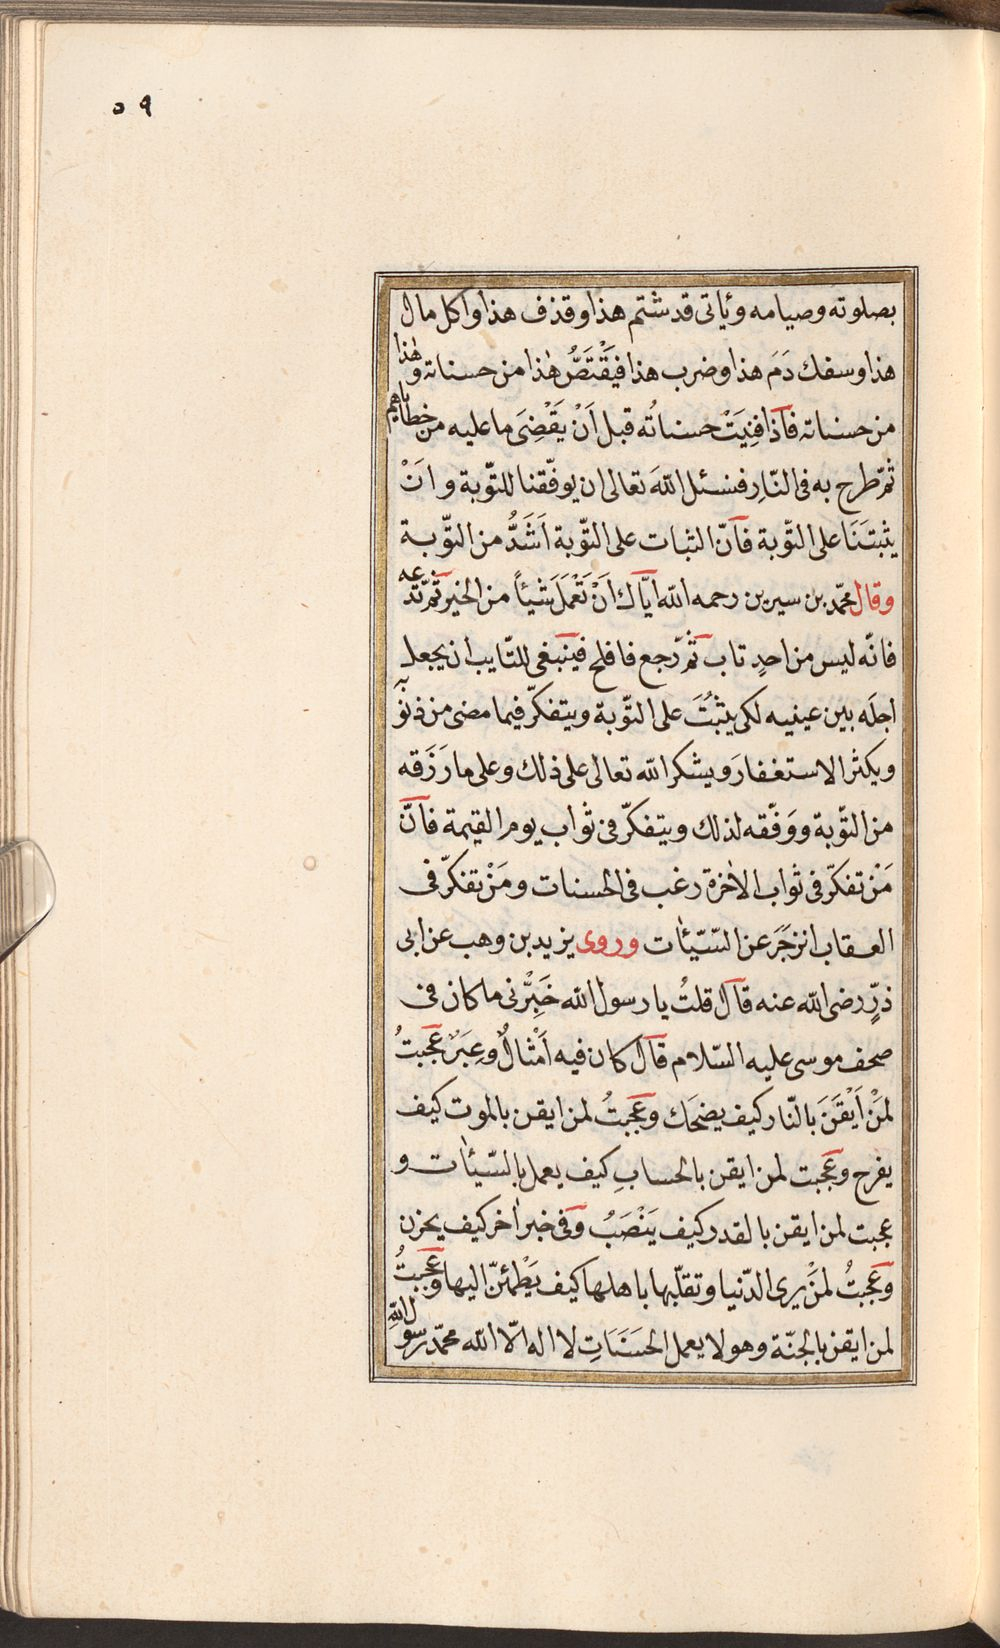 ٥٩
بصلوته وصيامه وياتى قد شتم هذا وقذف هذا واكل مال
هذا وسفك دَمَ هذا وضرب هذا فيَقْتَصُّ هٰذا من حسناته وهٰذا
من حسناته فاذا فنِيَتْ حسناتُه قبل اَنْ يَقْضِىَ ما عليه من خطاياهم
ثمّ طرح به فى النّارِ فنسئل اللهَ تعالى ان يوفّقنا للتّوبة و اَنْ
يثبتَنَا على التّوبة فانّ الثبات على التّوبة اَشَدُّ من التوّبة
وقال محمّد بن سيرين رحمه الله ايّاك اَنْ تَعْمَلَ شَيئاً من الخير ثمّ تدعه
فانّه ليس من احدٍ تاب ثمّ رّجع فافلح فينبغى للتّايب ان يجعل
اجلَه بين عينيه لكى يثبُتَ على التوّبة ويتفكّر فيما مضى من ذنوبه
ويكثر الاستغفارَ ويشكر الله تعالى على ذلك وعلى ما رَزَقه
من التّوبة ووَفّقه لذلك ويتفكّر فى ثواب يوم القيمة فانّ
مَنْ تفكّر فى ثواب الاٰخرة رغب فى الحسنات ومَنْ تفكّر فى
العقاب انزجَرَ عن السّيّئٰات وروى يزيد بن وهب عن ابى
ذرٍّ رضى الله عنه قال قلتُ يا رسول الله خَبِّرْنى ما كان فى
صحف موسى عليه السّلام قال كان فيه اَمْثالٌ وعِبَرٌ عَجبتُ
لمَنْ اَيْقَنَ بالنّار كيف يضحَك وعَجَبتُ لمن ايقن بالموت كيف
يفرح وعَجبت لمن ايقن بالحسابِ كيف يعمل بالسّيئٰات و
عجبت لمن ايقن بالقدر كيف يَنْصَبُ وفى خبر اٰخر كيف يحزن
وعَجبتُ لمَنْ يرى الدّنيا وتقلّبها باهلها كيف يَطْمئنّ اليها وعَجبتُ
لمن ايقن بالجنّة وهو لا يعمل الحَسَنَاتِ لا اله الّا الله محمّد رسول اللهِ